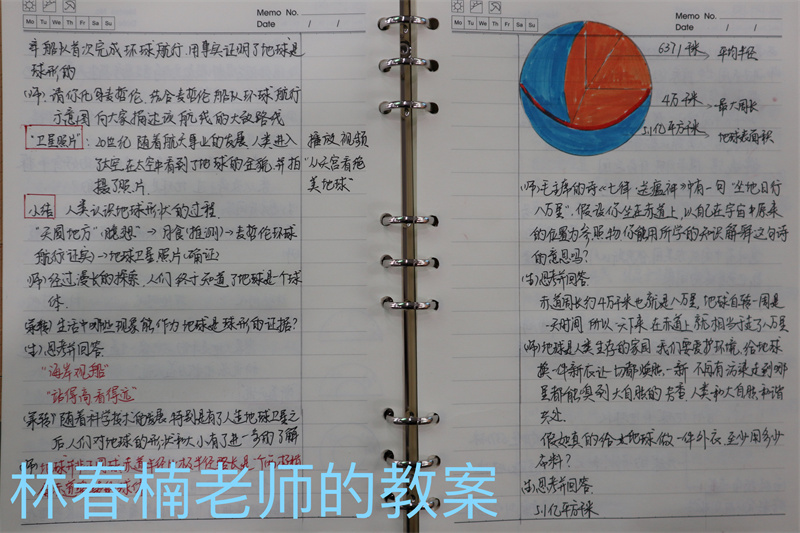 Memo No.
Mo Tu We Th Fr Sa Su
Date / /
率船队首次完成环球航行,用事实证明了地球是
球形的
(师)请你化身麦哲伦,结合麦哲伦船队环球航行
示意图向大家描述该航线的大致路线
"卫星照片":20世纪,随着航天事业的发展,人类进入
了太空,在太空中看到了地球的全貌,并拍
摄了照片.
播放视频
"从太空看绝
美地球"
小结 人类认识地球形状的过程.
"天圆地方"(臆想)→月食(推测)→麦哲伦环球
航行(证实)→地球卫星照片(确证)
(师)经过漫长的探索,人们终于知道了地球是个球
体.
(承转)生活中哪些现象能作为地球是球形的证据?
(生)思考并回答.
"海岸观船"
"站得高看得远"
(承转)随着科学技术的发展,特别是有了人造地球卫星之
后人们对地球的形状和大小有了进一步的了解
林春楠老师的教案
Memo No.
Mo Tu We Th Fr Sa Su
Date / /
6371千米 → 平均半径
4万千米 → 最大周长
5.1亿平方千米 → 地球表面积
(师)毛主席的诗《七律 送瘟神》中有一句"坐地日行
八万里",假设你坐在赤道上,以自己在宇宙中原来
的位置为参照物,你能用所学的知识解释这句诗
的意思吗?
(生)思考并回答
赤道周长约4万千米也就是八万里,地球自转一周是
一天时间,所以一天下来,在赤道上就相当于走了八万里
(师)地球是人类生存的家园,我们要爱护环境,给地球
换一件新衣,让一切都焕然一新,不再有污染,走到哪
里都能嗅到大自然的芳香,人类和大自然和谐
共处.
假如真的给地球做一件外衣,至少用多少
布料?
(生)思考并回答.
5.1亿平方千米